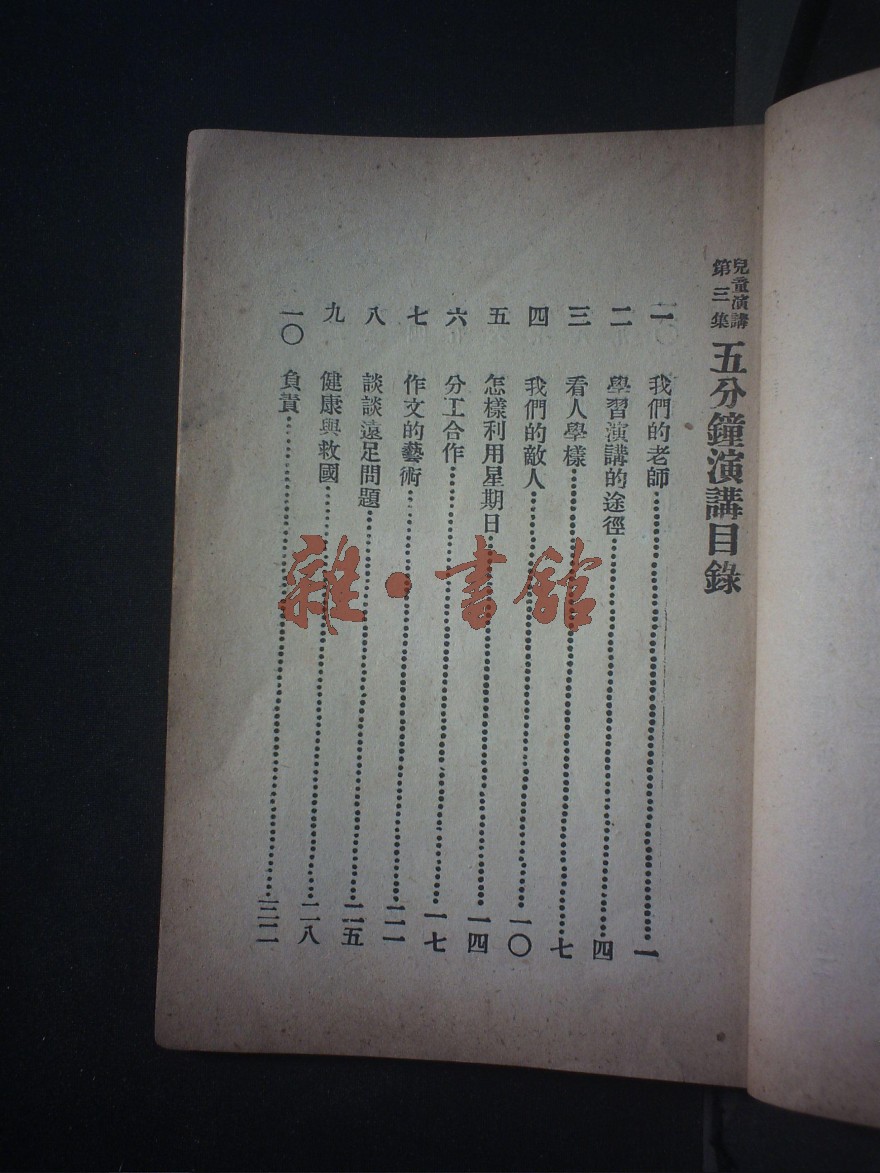 兒童演講
第三集
五分鐘演講目錄
一 我們的老師 一
二 學習演講的途徑 四
三 看人學樣 七
四 我們的敵人 一〇
五 怎樣利用星期日 一四
六 分工合作 一七
七 作文的藝術 二一
八 談談遠足問題 二五
九 健康與救國 二八
一〇 負責 三二
雜·書館